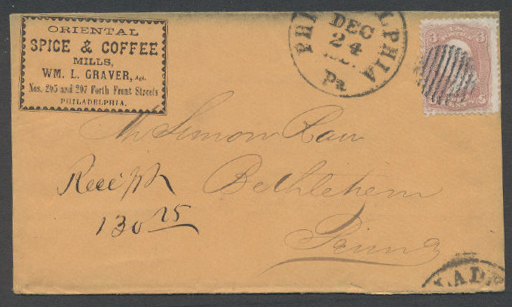 ORIENTAL
SPICE & COFFEE
MILLS,
WM. L. GRAVER, Agt.
Nos. 205 and 207 North Front Street,
PHILADELPHIA.
PHILADELPHIA
DEC
24
Pa
3 3
Mr Simon Rau
Bethlehem
Penna
Receipt
130 75